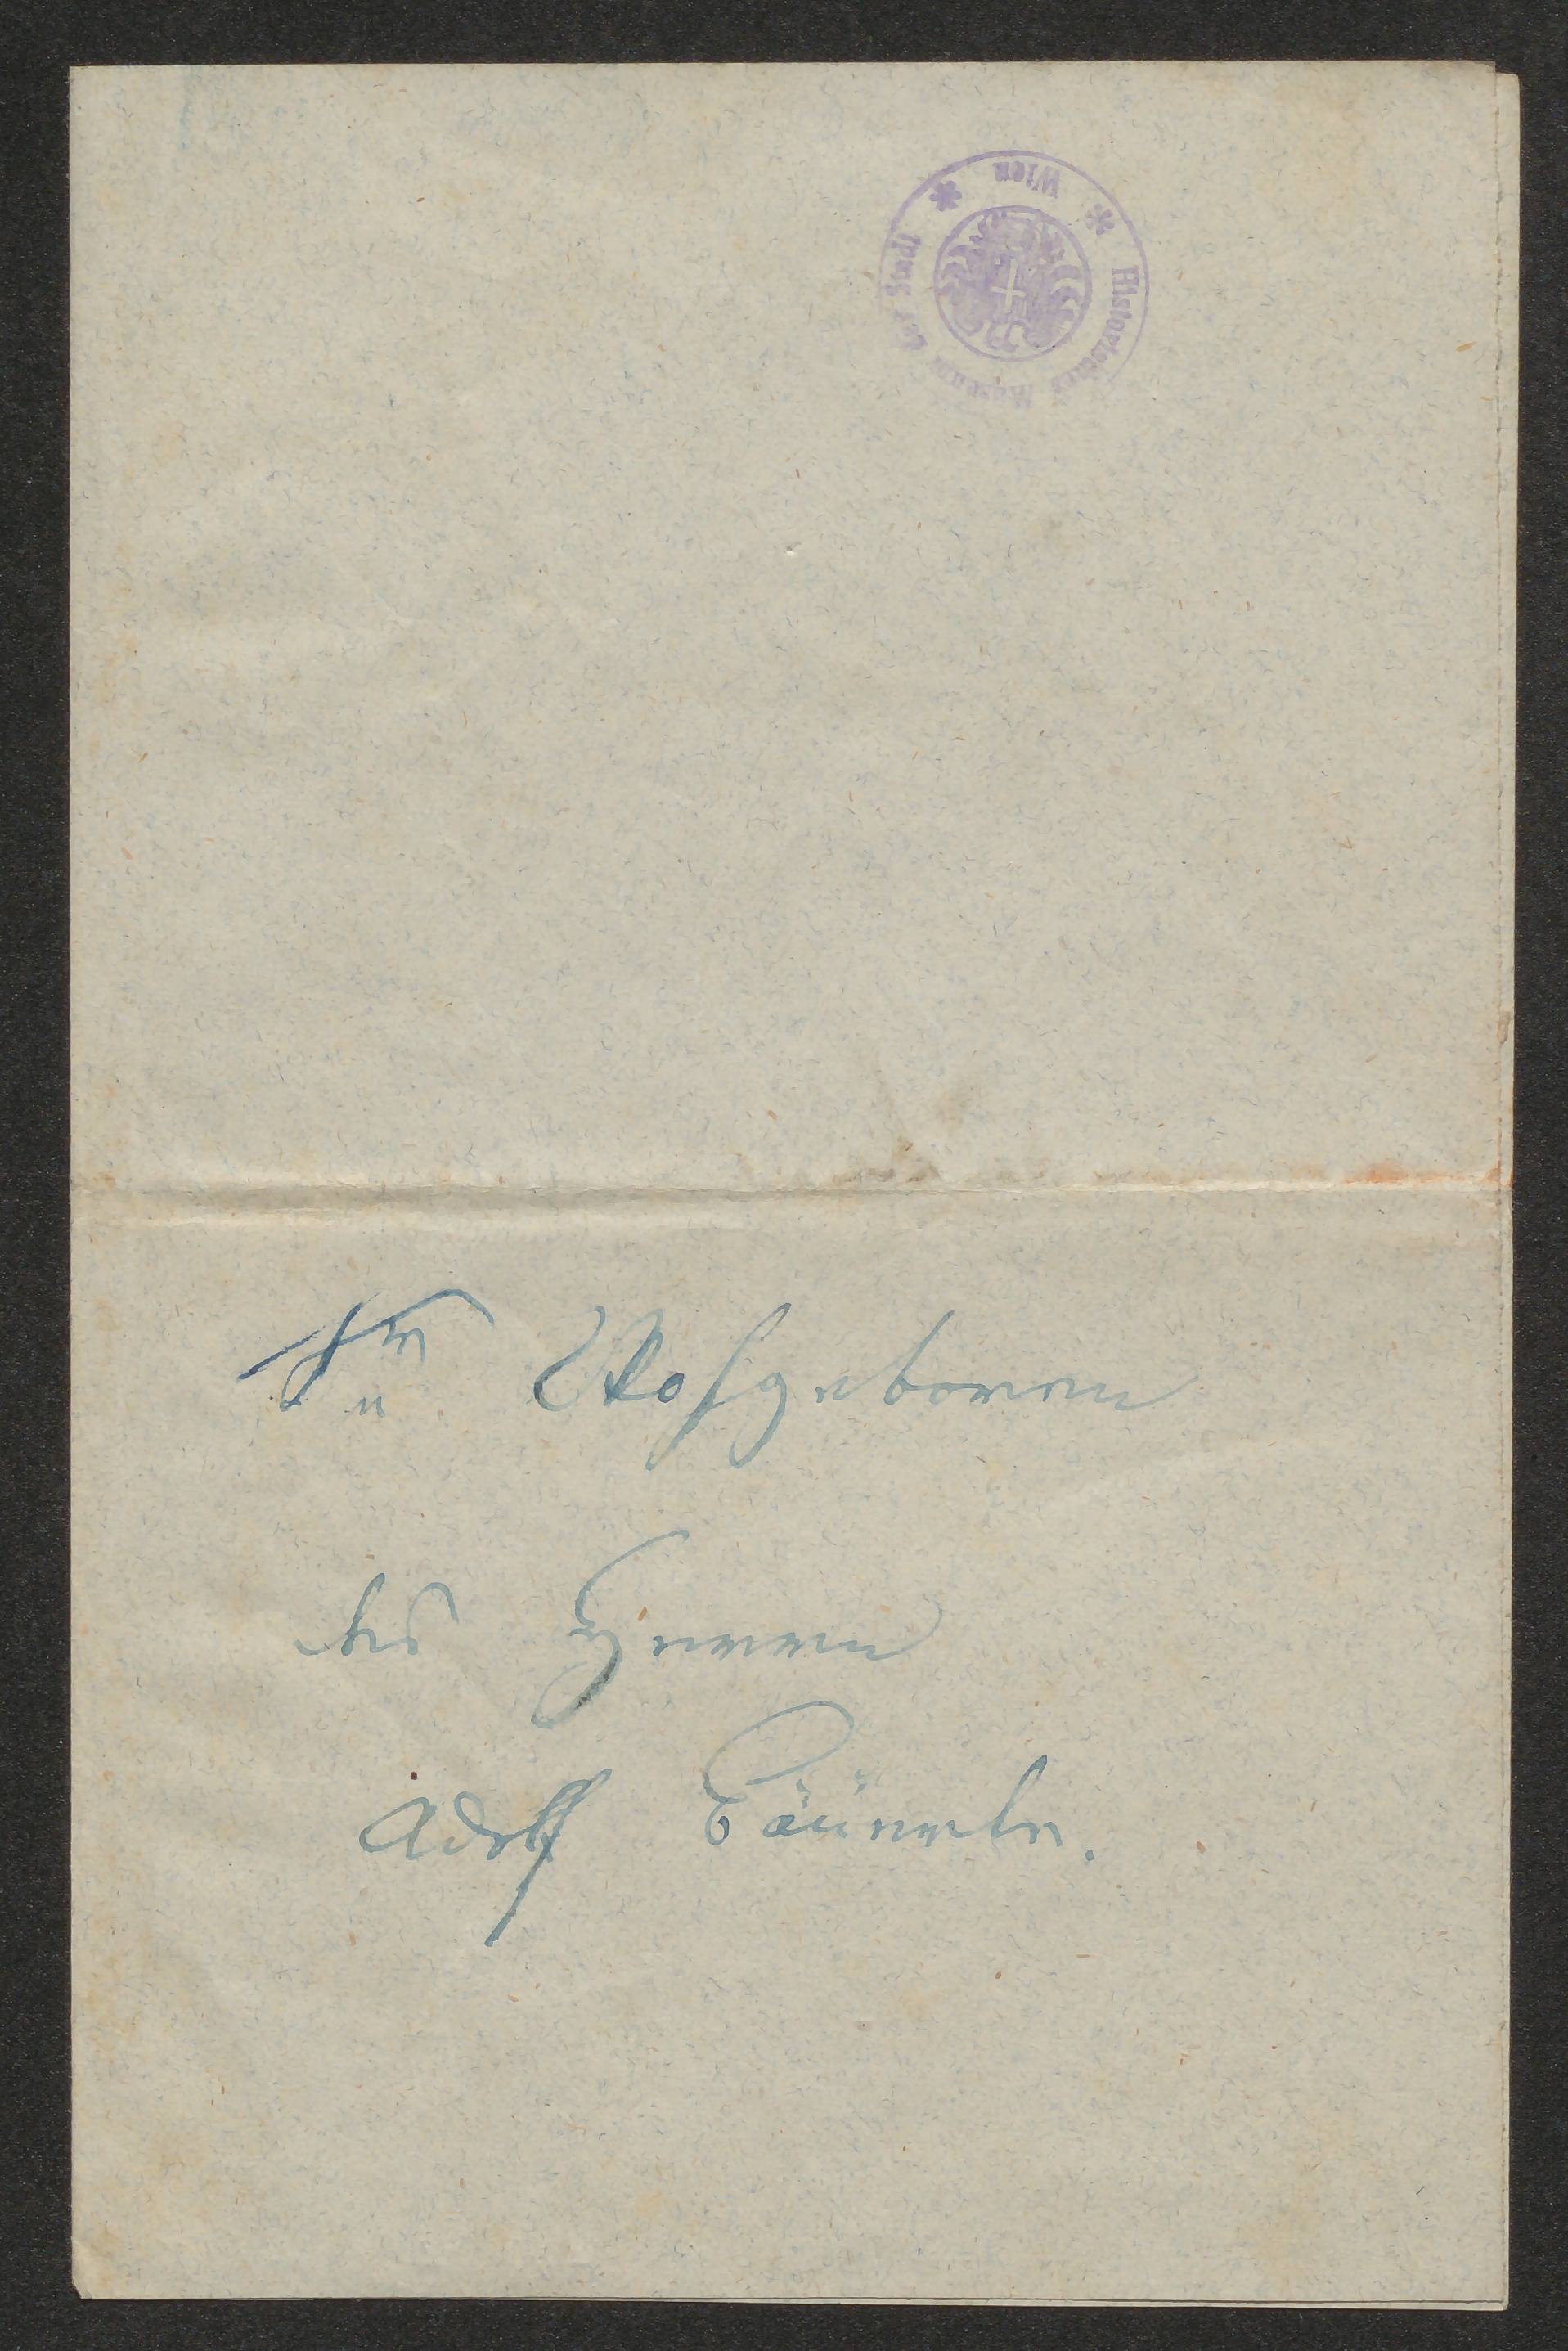 Historisches Museum der Stadt * Wien *
Sr Wolgeboren
des Herrn
Adolf Bäuerle.